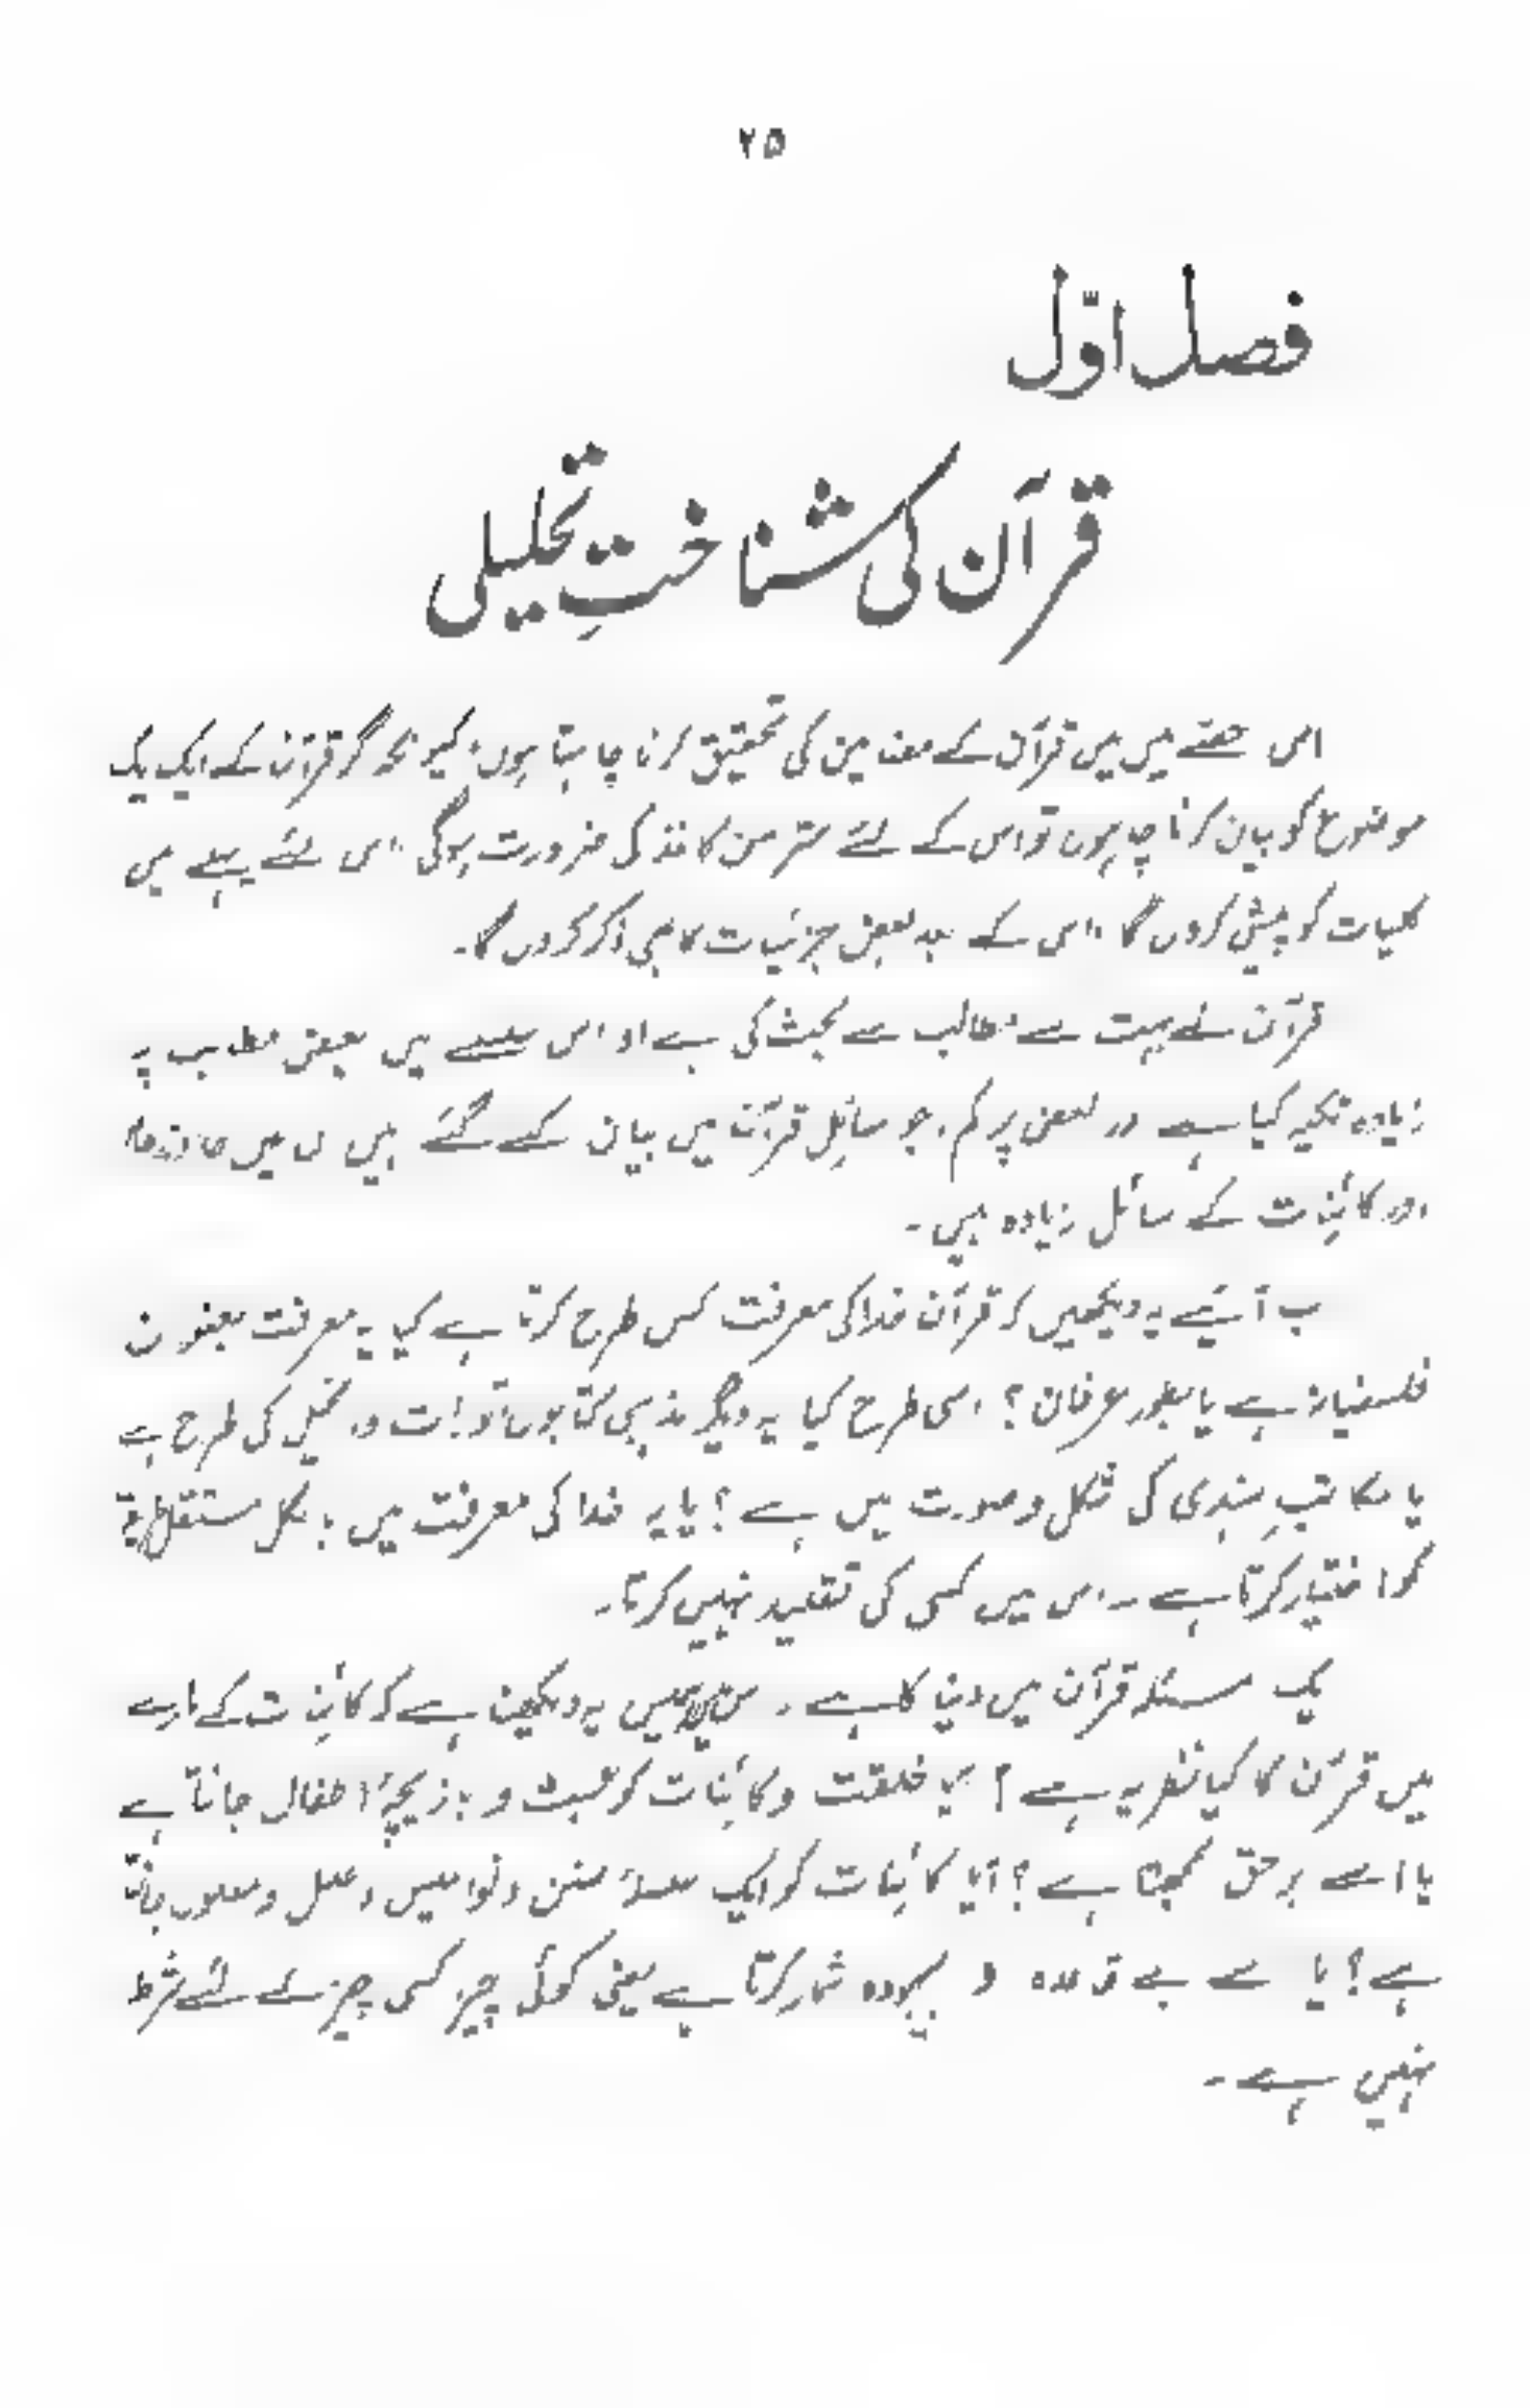 ۲۵
فصل اوّل
قرآن کی شناختِ تحلیلی
اس حصّے میں میں قرآن کے مضامین کی تحقیق کرنا چاہتا ہوں، کیونکہ گر قرآن کے ایک یک
موضوع کو بیان کرنا چاہوں تو اس کے لئے ستر من کاغذ کی ضرورت ہوگی اس لئے پہلے میں
کلیات کو پیش کروں گا اس کے بعد بعض جزئیات کا بھی ذکر کروں گا۔
قرآن نے بہت سے مطالب سے بحث کی ہے او اس سلسلے میں بعض مطالب پر
زیادہ تکیہ کیا ہے ور بعض پر کم، جو مسائل قرآن میں بیان کئے گئے ہیں ن میں
اور کائنات کے مسائل زیادہ ہیں۔
ب آئیے یہ دیکھیں کہ قرآن خدا کی معرفت کس طرح کرتا ہے کیا یہ معرفت بعنو ن
فلسفیانہ ہے یا بطور عرفان؟ اسی طرح کیا یہ دیگر مذہبی کتابوں تورات و انجیل کی طرح ہے
یا مکاتبِ ہندی کی شکل و صورت میں ہے؟ یا یہ خدا کی معرفت میں بالکل مستقل طریقے
کو اختیار کرتا ہے ۔ اس میں کسی کی تقلید نہیں کرتا۔
یک مسئلہ قرآن میں دنیا کا ہے ۔ ہمیں یہ دیکھنا ہے کہ کائنات کے بارے
میں قرآن کا کیا نظریہ ہے؟ کیا خلقت و کائنات کو عبث و بازیچۂ اطفال جانتا ہے
یا اسے برحق سمجھتا ہے؟ آیا کائنات کو ایک سلسلۂ سنن و نوامیس و علل و معلول جانتا
ہے؟ یا سے بے قاعدہ و بیہودہ شمار کرتا ہے یعنی کوئی چیز کسی چیز کے لئے شرط
نہیں ہے۔